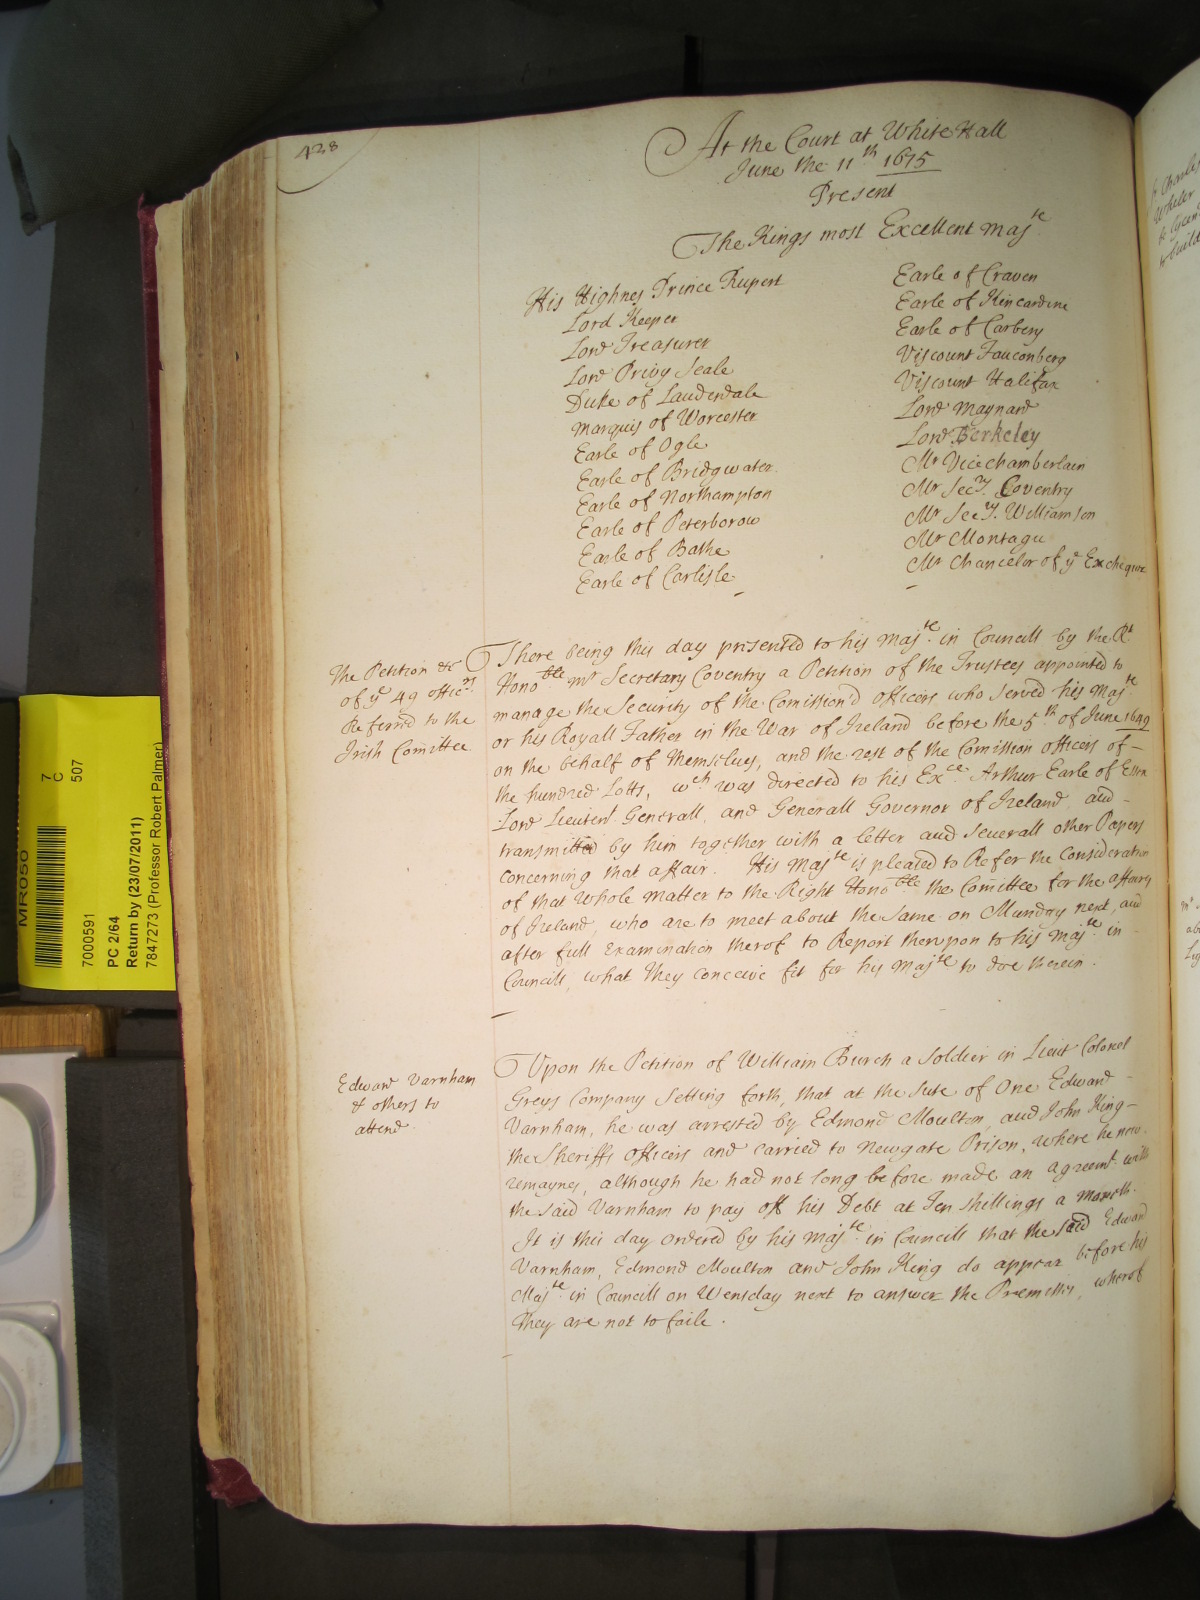 428
At the Court at White Hall
June the 11th 1675
Present
The Kings most Excellent Majte
His Highnes Prince Rupert
Lord Keeper
Lord Treasurer
Lord Privy Seale
Duke of Lauderdale
Marquis of Worcester
Earle of Ogle
Earle of Bridgwater
Earle of Northampton
Earle of Peterborow
Earle of Bathe
Earle of Carlisle
Earle of Craven
Earle of Kincardine
Earle of Carbery
Viscount Fauconberg
Viscount Halifax
Lord Maynard
Lord Berkeley
Mr Vicechamberlain
Mr Secry. Coventry
Mr Secry. Williamson
Mr Montagu
Mr Chancelor of ye Exchequer
The Petition &c
of ye 49 officrs
Referred to the
Irish Comittee
There being this day presented to his Majte. in Councill by the Rt
Honoble Mr Secretary Coventry a Petition of the Trustees appointed to
manage the Security of the Comission'd officers who served his Majte
or his Royall Father in the War of Ireland before the 5th of June 1649
on the behalf of themselves, and the rest of the Comission officers of -
the hundred Lotts, wch was directed to his Exce Arthur Earle of Essex
Lord Lieutent Generall, and Generall Governor of Ireland, and -
transmitted by him together with a letter and severall other Papers
concerning that affair. His Majte is pleased to Refer the Consideration
of that Whole Matter to the Right Honoble the Comittee for the affairs
of Ireland, who are to meet about the same on Munday next, and
after full Examination therof to Report therupon to his Majte in
Councill, what they conceive fit for his Majte to doe therein.
Edward Varnham
& others to
attend
Upon the Petition of William Burch a Soldier in Lieut Colonel
Greys Company Setting forth, that at the Sute of One Edward -
Varnham, he was arrested by Edmond Moulton, and John King -
the Sheriffs Officers and carried to Newgate Prison, where he now
remaynes, although he had not long before made an agreemt. with
the said Varnham to pay off his Debt at Ten shillings a month.
It is this day ordered by his Majte. in Councill that the said Edward
Varnham, Edmond Moulton and John King do appear before his
Majte. in Councill on Wensday next to answer the Premisses, wherof
they are not to faile.
MR050
7
C
507
7000591
PC 2/64
Return by (23/07/2011)
7847273 (Professor Robert Palmer)